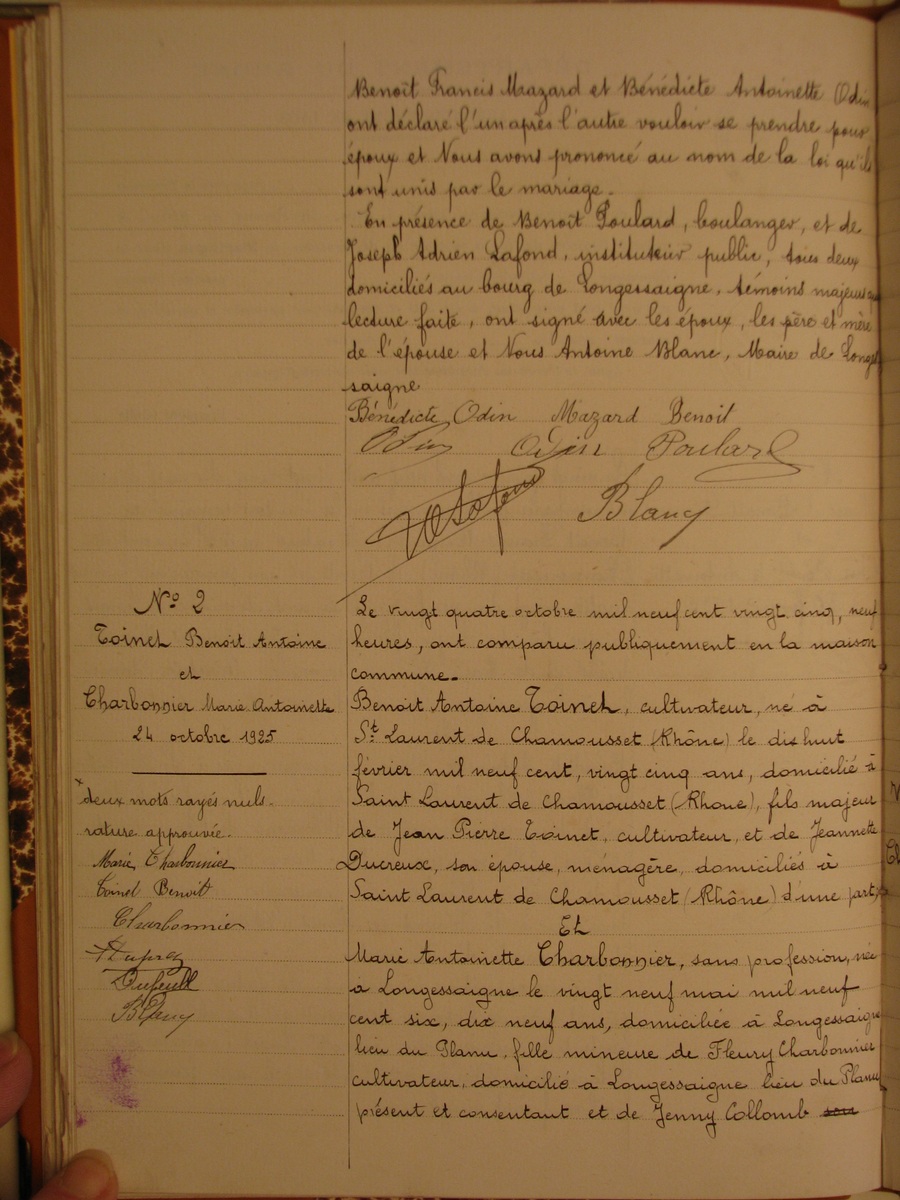 Benoît Francis Mazard et Bénédicte Antoinette Odin
ont déclaré l'un après l'autre vouloir se prendre pour
époux et Nous avons prononcé au nom de la loi qu'ils
sont unis par le mariage.
En présence de Benoît Poulard, boulanger, et de
Joseph Adrien Lafond, instituteur public, tous deux
domiciliés au bourg de Longessaigne, témoins majeurs
lecture faite, ont signé avec les époux, les père et mère
de l'épouse et Nous Antoine Blanc, Maire de Longes
saigne
Bénédicte Odin Mazard Benoit
Odin Odin Poulard
Blanc
Nº 2
Toinet Benoît Antoine
et
Charbonnier Marie Antoinette
24 octobre 1925
x deux mots rayés nuls.
rature approuvée.
Marie Charbonnier
Toinet Benoit
Charbonnier
Blanc
Le vingt quatre octobre mil neuf cent vingt cinq, neuf
heures, ont comparu publiquement en la maison
commune.
Benoit Antoine Toinet, cultivateur, né à
St Laurent de Chamousset (Rhône) le dix huit
février mil neuf cent, vingt cinq ans, domicilié à
Saint Laurent de Chamousset (Rhone), fils majeur
de Jean Pierre Toinet, cultivateur, et de Jeannette
Ducreux, son épouse, ménagère, domiciliés à
Saint Laurent de Chamousset (Rhône) d'une part,
Et
Marie Antoinette Charbonnier, sans profession, née
à Longessaigne le vingt neuf mai mil neuf
cent six, dix neuf ans, domiciliée à Longessaigne
lieu du Planu, fille mineure de Fleury Charbonnier
cultivateur, domicilié à Longessaigne lieu du Planu
présent et consentant et de Jenny Collomb son